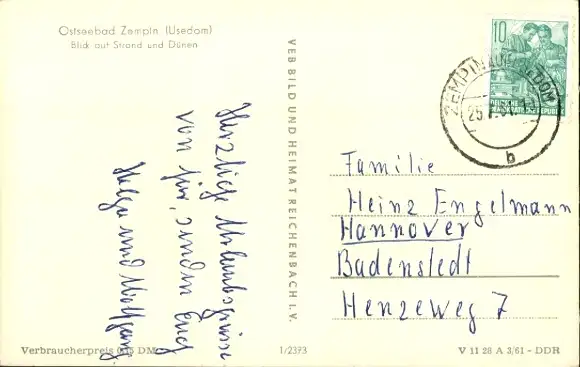 Ostseebad Zempin (Usedom)
Blick auf Strand und Dünen
Herzliche Urlaubsgrüsse
von hier, senden Euch
Helga und Wolfgang
VEB BILD UND HEIMAT REICHENBACH I. V.
10
DEUTSCHE
DEMOKRATISCHE REPUBLIK
ZEMPIN AUF USEDOM
25.7.61
b
Familie
Heinz Engelmann
Hannover
Badenstedt
Henzeweg 7
Verbraucherpreis DM
1/2373
V 11 28 A 3/61 - DDR